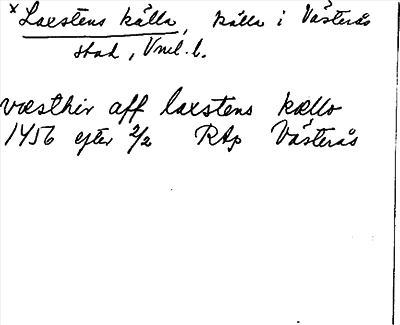 x Laxstens källa, källa i Västerås
stad, Vml. l.
væsthir aff laxstens kællo
1456 efter 2/2 RAp Västerås